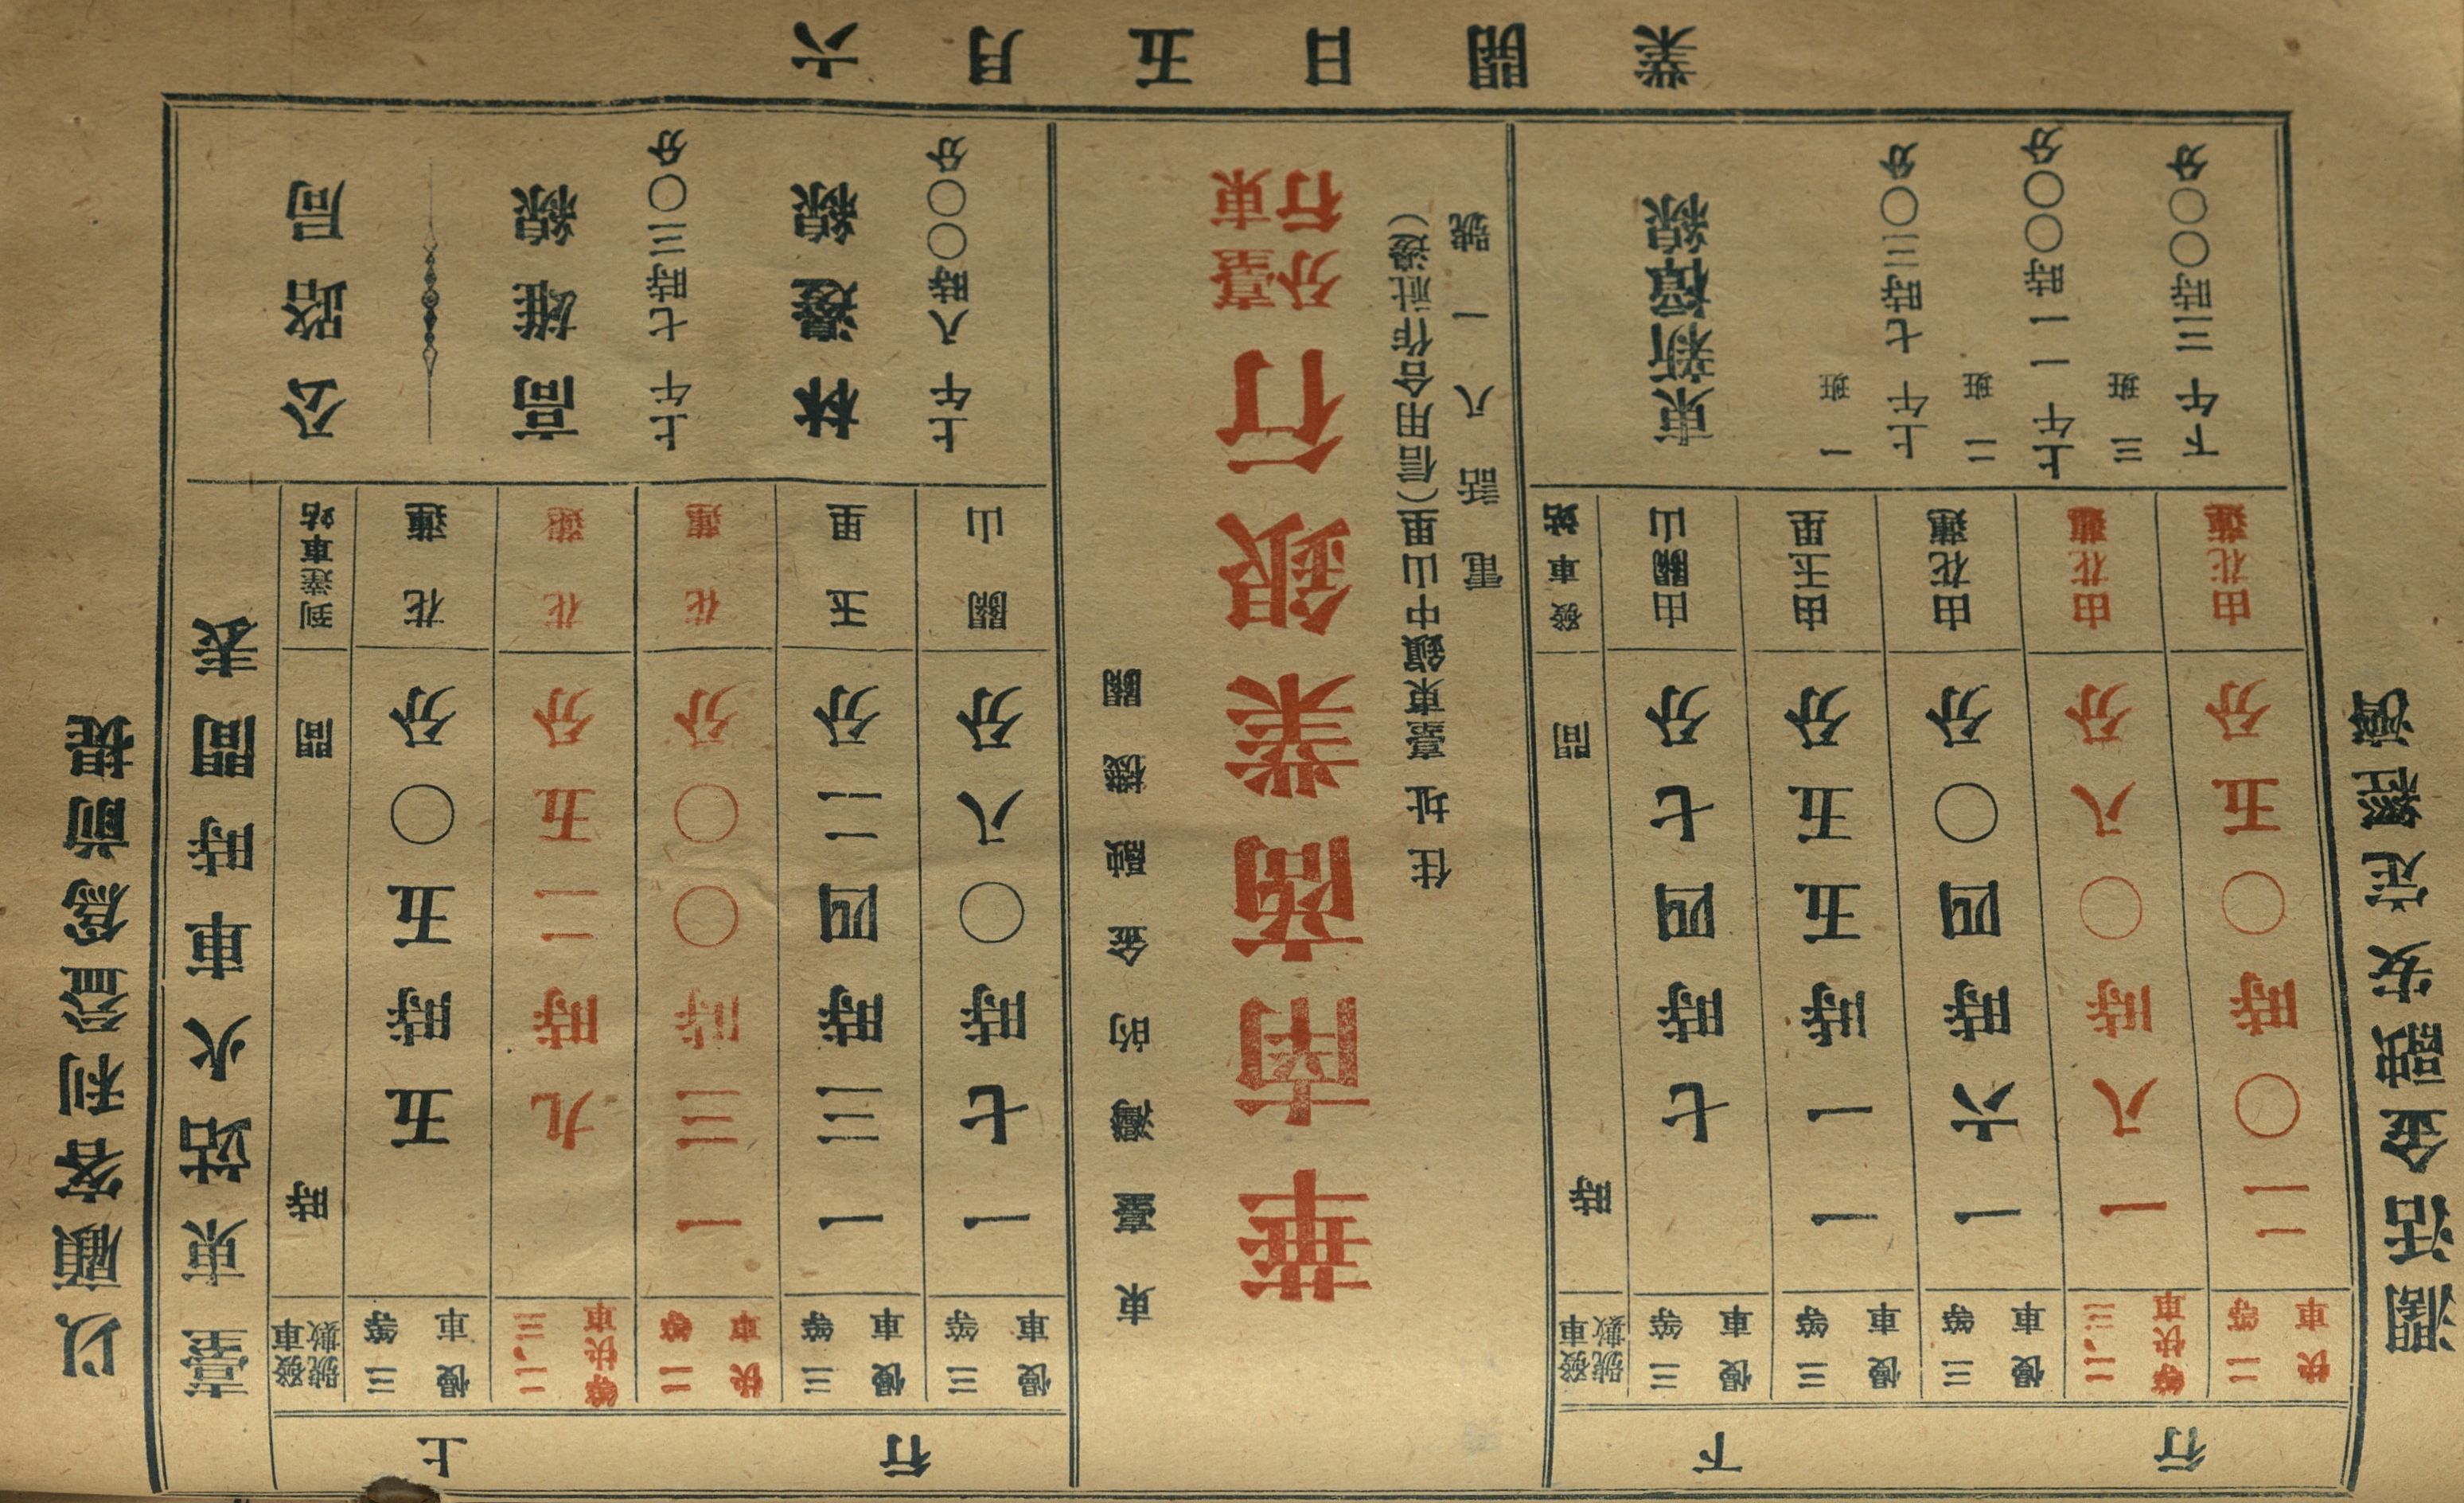 以顧客利益為前提
臺東站火車時間表
上行
發車號數 時間 到達車站
三等慢車 五時五〇分 花蓮
二,三等快車 九時二五分 花蓮
二等快車 一三時〇〇分 花蓮
三等慢車 一三時四二分 玉里
三等慢車 一七時〇八分 關山
公路局
高雄線
上午七時三〇分
林邊線
上午八時〇〇分
東臺灣的金融機關
華南商業銀行臺東分行
住址 臺東鎮中山里(信用合作社邊)
電話八一號
下行
發車號數 時間 發車站
三等慢車 七時四七分 由關山
三等慢車 一一時五五分 由玉里
三等慢車 一六時四〇分 由花蓮
二,三等快車 一八時〇八分 由花蓮
二等快車 二〇時〇五分 由花蓮
東新港線
一班
上午七時三〇分
二班
上午一一時〇〇分
三班
下午三時〇〇分
潤活金融安定經濟
六月五日開業